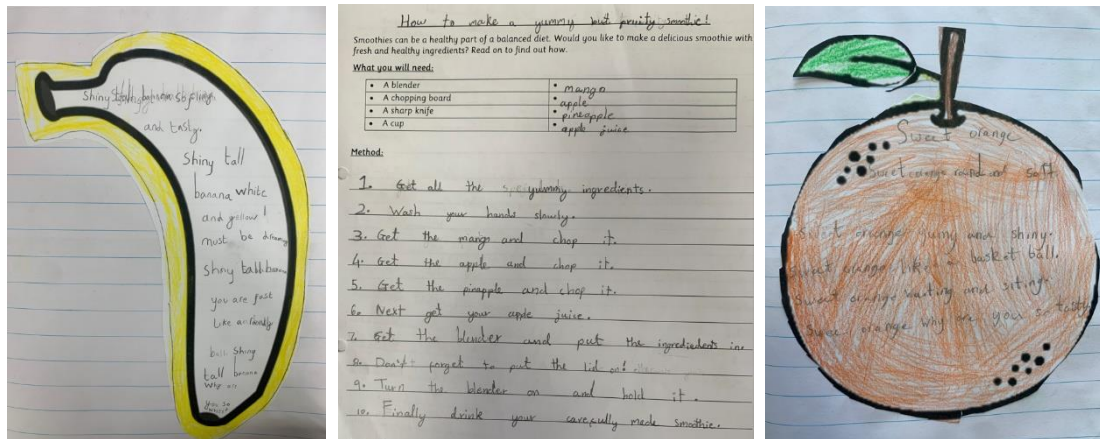 Shiny
and tasty.
Shiny tall
banana white
and yellow I
must be dreamy
Shiny tall banana
you are just
like a friendly
ball. Shiny
tall banana
why are
you so
How to make a yummy but fruity smothie!
Smoothies can be a healthy part of a balanced diet. Would you like to make a delicious smoothie with
fresh and healthy ingredients? Read on to find out how.
What you will need:
• A blender • mango
• A chopping board • apple
• A sharp knife • pineapple
• A cup • apple juice
Method:
1. Get all the yummy ingredients.
2. Wash your hands slowly.
3. Get the mango and chop it.
4. Get the apple and chop it.
5. Get the pineapple and chop it.
6. Next get your apple juice.
7. Get the blender and put the ingredients in.
8. Don't forget to put the lid on!
9. Turn the blender on and hold it.
10. Finally drink your carefully made smoothie.
Sweet orange
Sweet orange round and soft
Sweet orange yumy and shiny.
Sweet orange like a basket ball.
Sweet orange and
Sweet orange why are you so tasty